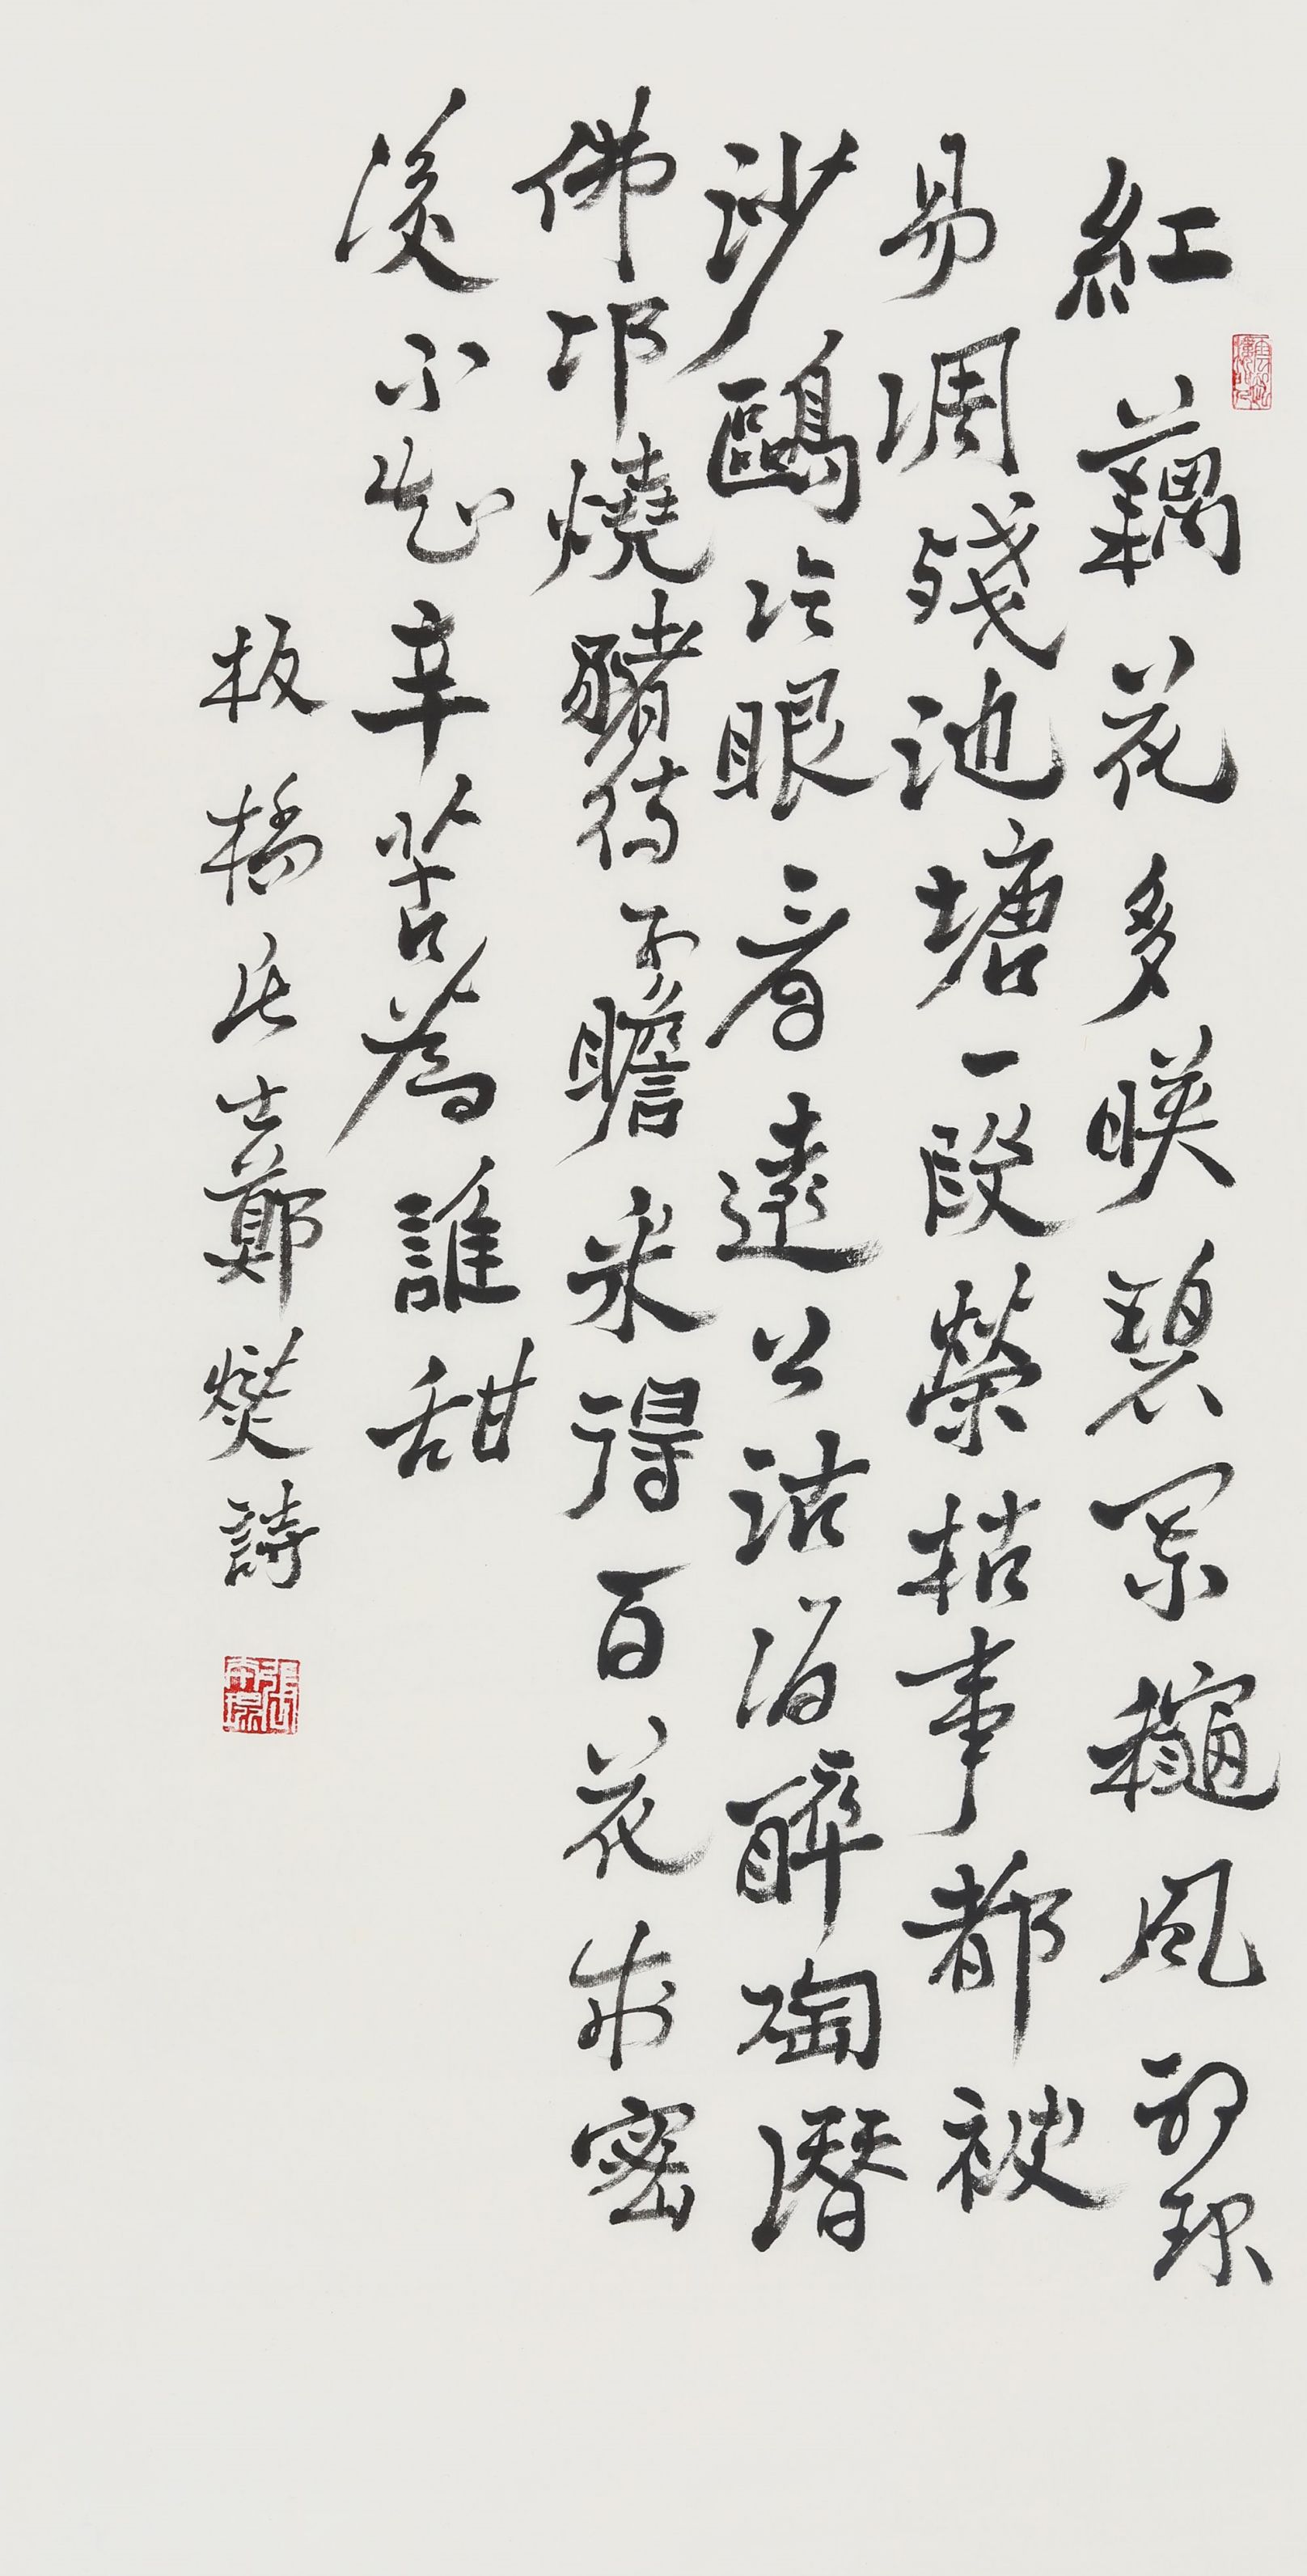 紅藕花多暎碧闌龝風
易凋殘池塘一段榮枯事都被
沙鷗冷眼看遠公沽酒醉陶潛
佛印燒豬待子瞻采得百花成密
後不知辛苦為誰甜
板橋居士鄭燮詩